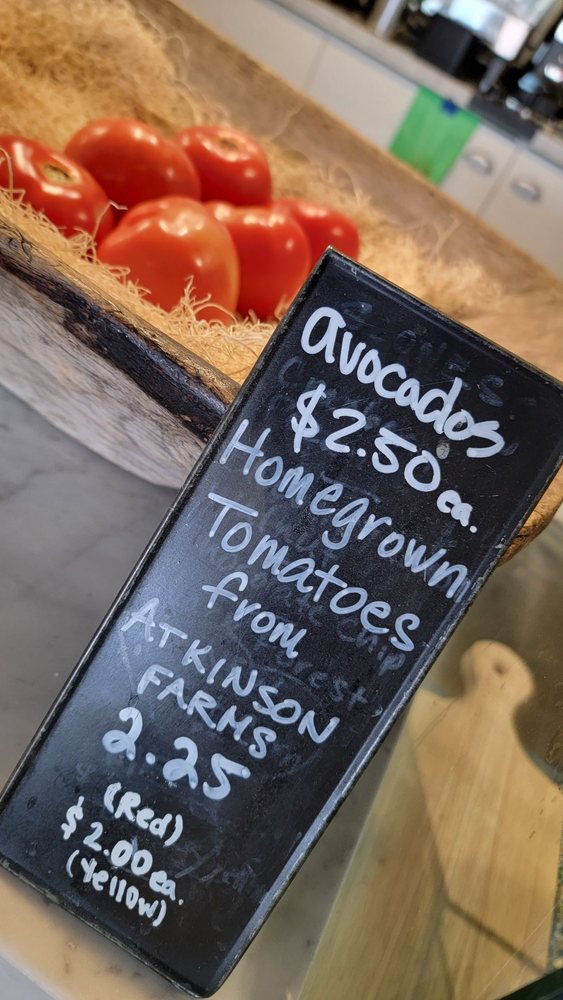 avocados
$2.50 ea.
Homegrown
Tomatoes
from
ATKINSON
FARMS
2.25
(Red)
$2.00 ea.
(Yellow)